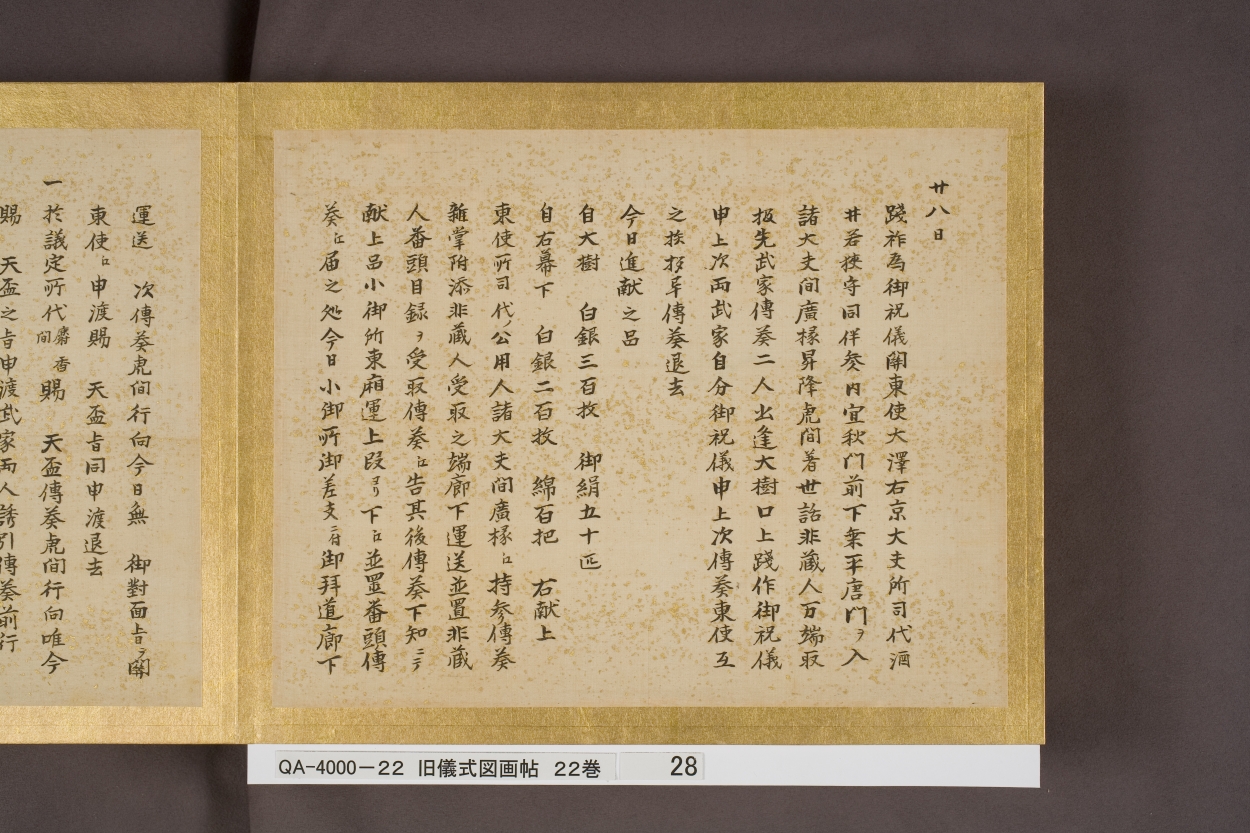 廿八日
踐祚為御祝儀關東使大澤右京大夫所司代酒
井若狹守同伴參内宜秋門前下乗平唐門ヲ入
諸大夫間廣椽昇降虎間著世話非蔵人万端取
扱先武家傳奏二人出逢大樹口上踐祚御祝儀
申上次両武家自分御祝儀申上次傳奏東使互
之挨拶畢傳奏退去
今日進献之品
自大樹　白銀三百枚　御絹五十匹
自右幕下　白銀二百枚　綿百把　右献上
東使所司代ノ公用人諸大夫間廣椽ニ持參傳奏
雑掌附添非蔵人受取之端廊下運送並置非蔵
人番頭目録ヲ受取傳奏ニ告其後傳奏下知ニテ
献上品小御所東廂運上段ヨリ下ニ並置番頭傳
奏ニ届之処今日小御所御差支ニ付御拜道廊下
運送　次傳奏虎間行向今日無　御對面旨ヲ關
東使ニ申渡賜　天盃旨同申渡退去
一於議定所代麝香間賜　天盃傳奏虎間行向唯今
賜　天盃之旨申渡武家両人誘引傳奏前行
QA-4000-22 旧儀式図画帖 22巻 28